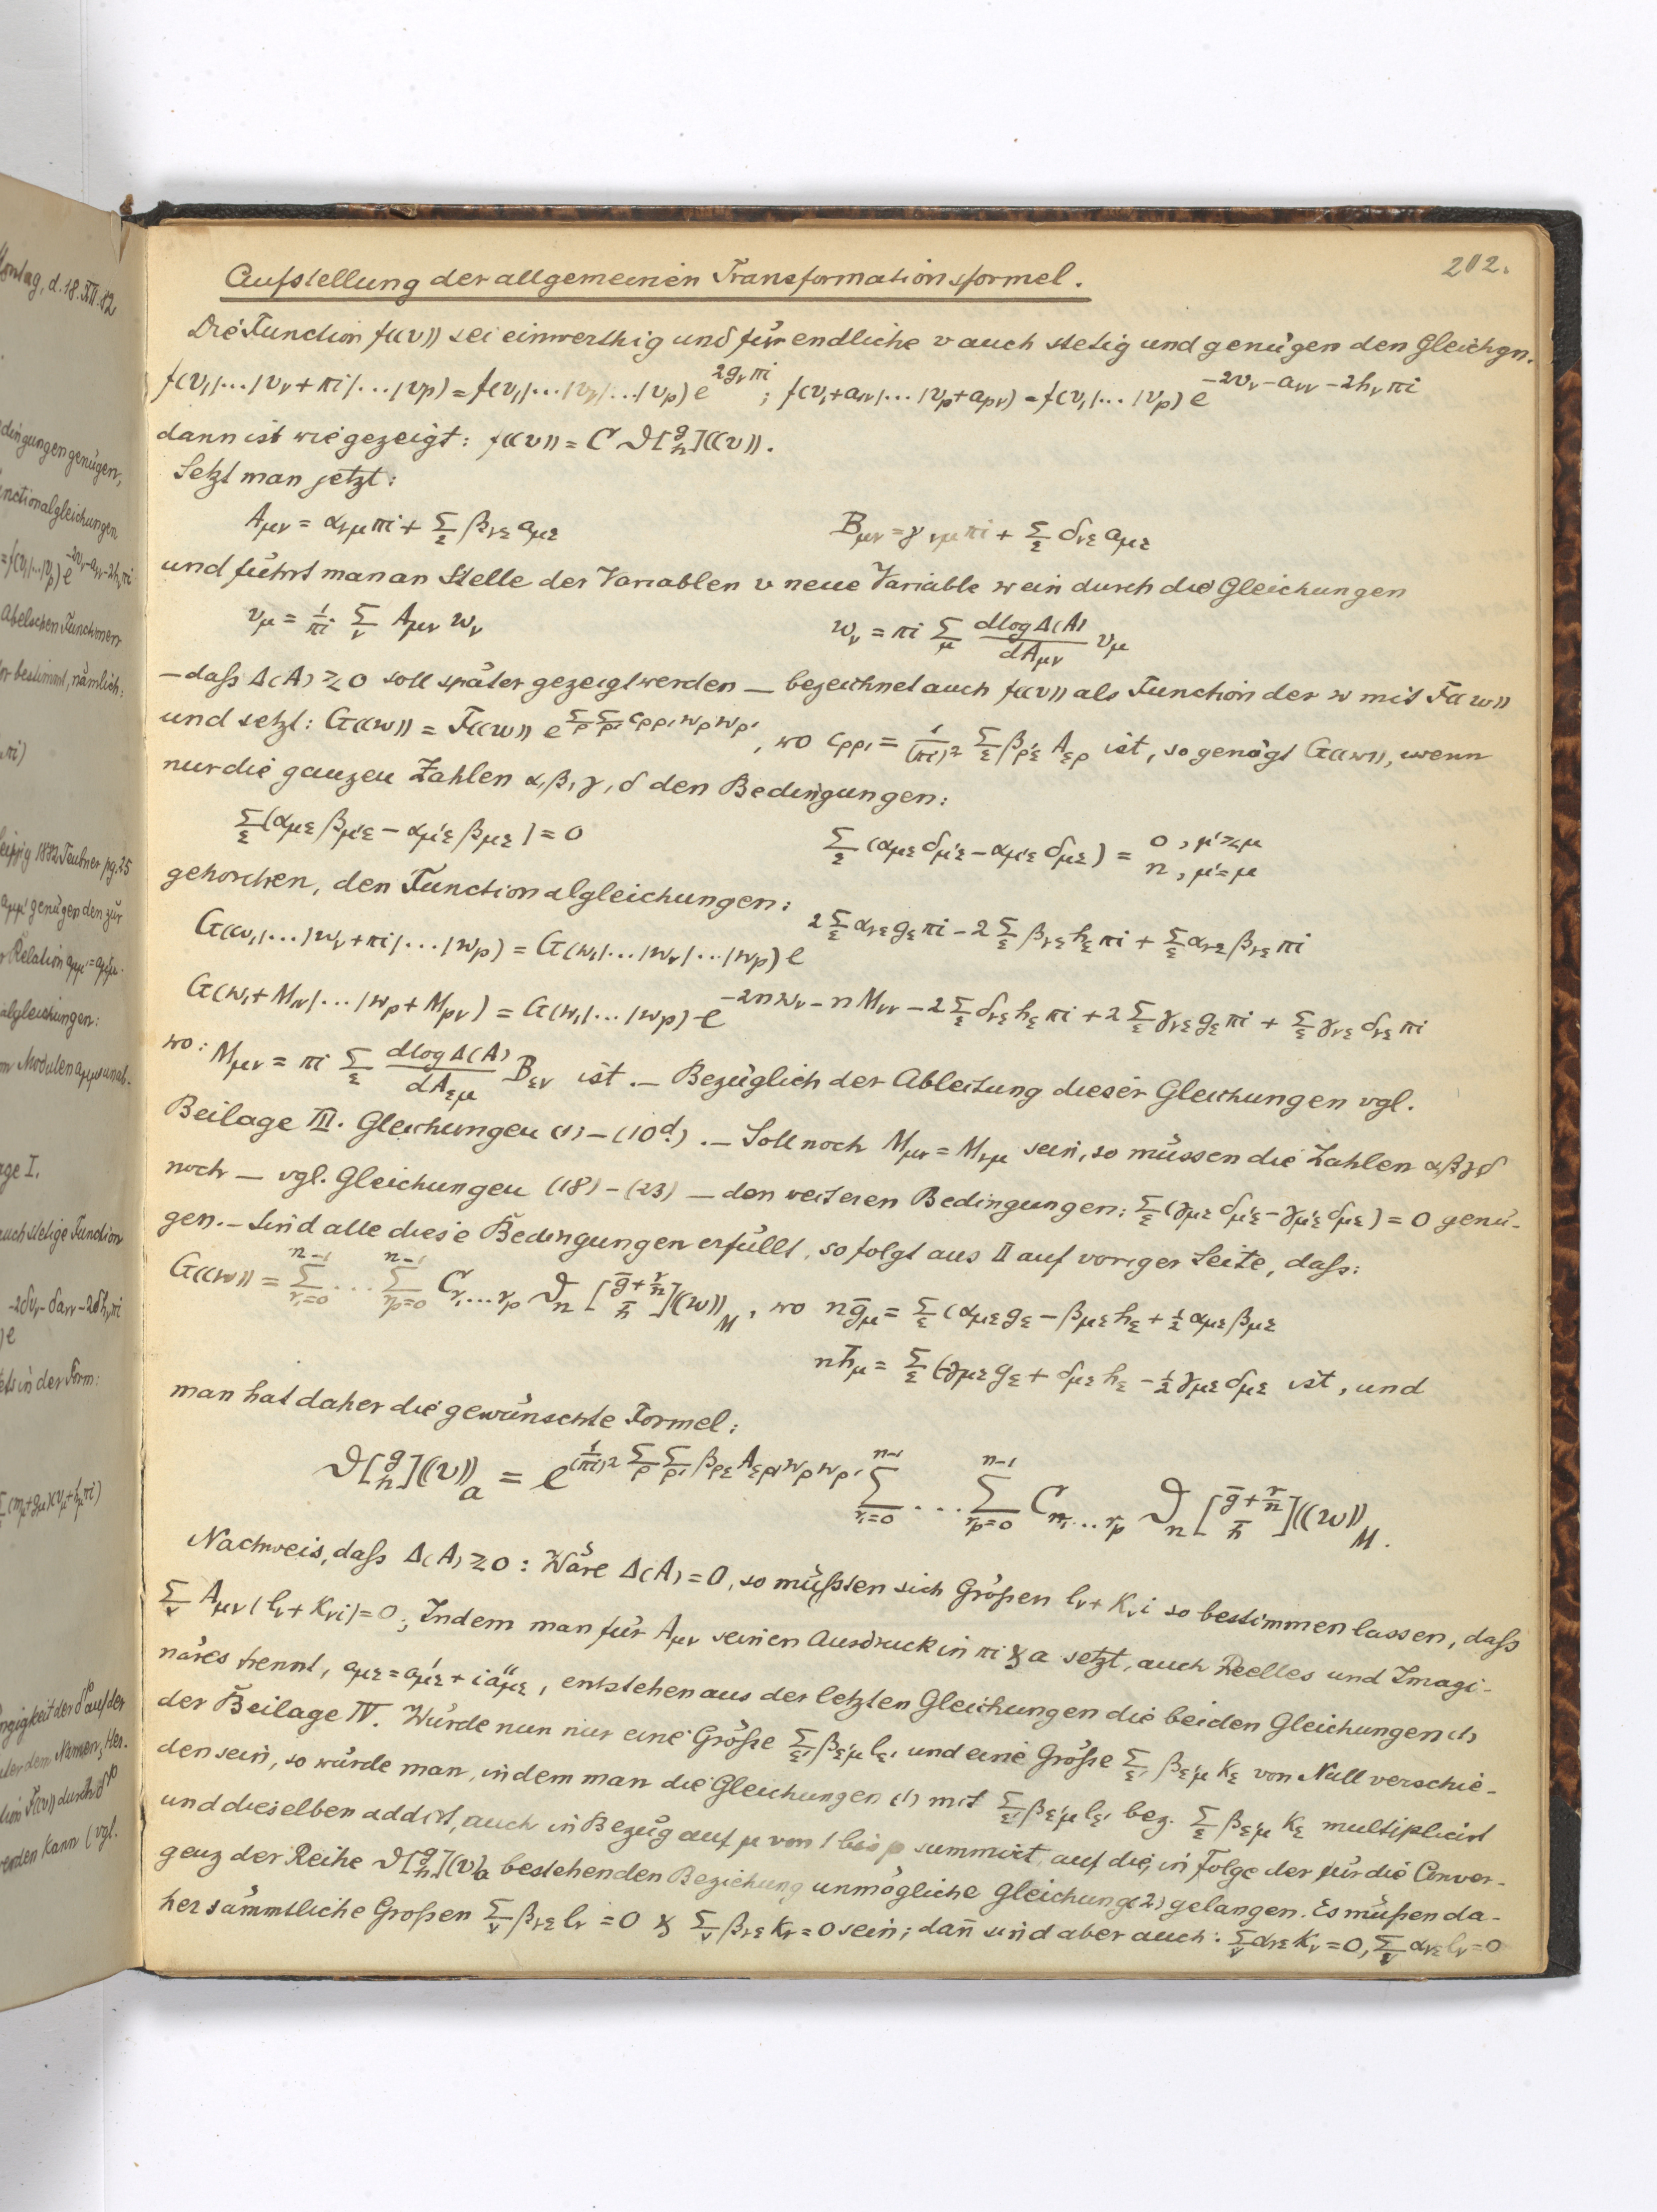 Montag, d. 18. XII. 82
dingungen genügen,
unctionalgleichungen
Abelschen Functionen
or bestimmt, nämlich:
πi)
eipzig 1882 Teubner pg. 25
aμμ' genügen den zur
Relation aμμ' = aμ'μ.
algleichungen:
n Modulen aμμ' unab-
age I.
auch stetige Function
ets in der Form:
ngigkeit der ϑ auf der
ation F((v)) durch ϑ
werden kann (vgl.
202.
Aufstellung der allgemeinen Transformationsformel.
Die Function f((v)) sei einwerthig und für endliche v auch stetig und genügen den Gleichgn.
f(v₁|...|vν+πi|...|vp) = f(v₁|...|vν|...|vp) e^{2gν πi} ; f(v₁+a₁ν|...|vp+apν) = f(v₁|...|vp) e^{-2vν-aνν-2hν πi}
dann ist wie gezeigt: f((v)) = C ϑ[g h]((v)).
Setzt man jetzt:
Aμν = ανμ πi + Σε βνε aμε Bμν = γνμ πi + Σε δνε aμε
und führt man an Stelle der Variablen v neue Variable w ein durch die Gleichungen
vμ = 1/πi Σν Aμν wν wν = πi Σμ dlogΔ(A)/dAμν vμ
– daß Δ(A) ≷ 0 soll später gezeigt werden – bezeichnet auch f((v)) als Function der w mit F((w))
und setzt: G((w)) = F((w)) e^{Σρ Σρ' cρρ' wρ wρ'}, wo cρρ' = 1/(πi)² Σε βρ'ε Aερ ist, so genügt G((w)), wenn
nur die ganzen Zahlen α, β, γ, δ den Bedingungen:
Σε(αμε βμ'ε – αμ'ε βμε) = 0 Σε(αμε δμ'ε – αμ'ε δμε) = 0, μ'≷μ n, μ'=μ
gehorchen, den Functionalgleichungen:
G(w₁|...|wν+πi|...|wp) = G(w₁|...|wν|...|wp) e^{2Σε ανε gε πi – 2Σε βνε hε πi + Σε ανε βνε πi}
G(w₁+M₁ν|...|wp+Mpν) = G(w₁|...|wp) e^{-2nwν – nMνν – 2Σε δνε hε πi + 2Σε γνε gε πi + Σε γνε δνε πi}
wo: Mμν = πi Σε dlogΔ(A)/dAεμ Bεν ist. – Bezüglich der Ableitung dieser Gleichungen vgl.
Beilage III. Gleichungen (1)–(10d). – Soll noch Mμν = Mνμ sein, so müssen die Zahlen αβγδ
noch – vgl. Gleichungen (18)–(23) – den weiteren Bedingungen: Σε(γμε δμ'ε – γμ'ε δμε) = 0 genü-
gen. – Sind alle diese Bedingungen erfüllt, so folgt aus II auf voriger Seite, daß:
G((w)) = Σ^{n-1}_{r₁=0} ... Σ^{n-1}_{rp=0} C_{r₁...rp} ϑn[ḡ+r/n h̄]((w))M, wo nḡμ = Σε(αμε gε – βμε hε + ½ αμε βμε
nh̄μ = Σε(-γμε gε + δμε hε – ½ γμε δμε ist, und
man hat daher die gewünschte Formel:
ϑ[g h]((v))a = e^{1/(πi)² Σρ Σρ' βρε Aερ' wρ wρ'} Σ^{n-1}_{r₁=0} ... Σ^{n-1}_{rp=0} C_{r₁...rp} ϑn[ḡ+r/n h̄]((w))M.
Nachweis, daß Δ(A) ≷ 0: Wäre Δ(A) = 0, so müßten sich Größen lν + kν i so bestimmen lassen, daß
Σν Aμν(lν + kν i) = 0; Indem man für Aμν seinen Ausdruck in πi & a setzt, auch Reelles und Imagi-
näres trennt, aμε = a'με + i a''με, entstehen aus der letzten Gleichungen die beiden Gleichungen (1)
der Beilage IV. Würde nun nur eine Größe Σε' βε'μ lε' und eine Größe Σε' βε'μ kε von Null verschie-
den sein, so würde man, indem man die Gleichungen (1) mit Σε' βε'μ lε' bez. Σε βε'μ kε multiplicirt
und dieselben addirt, auch in Bezug auf μ von 1 bis p summirt, auf die, in Folge der für die Conver-
genz der Reihe ϑ[g h]((v))a bestehenden Beziehung unmögliche Gleichung (2) gelangen. Es müßen da-
her sämmtliche Großen Σν βνε lν = 0 & Σν βνε kν = 0 sein; dañ sind aber auch: Σν ανε kν = 0, Σν ανε lν = 0